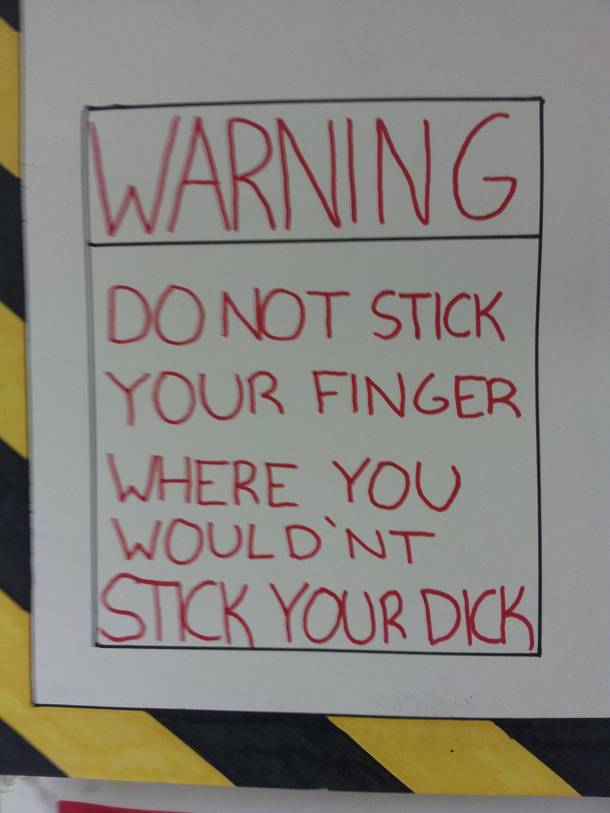 WARNING
DO NOT STICK
YOUR FINGER
WHERE YOU
WOULD'NT
STICK YOUR DICK